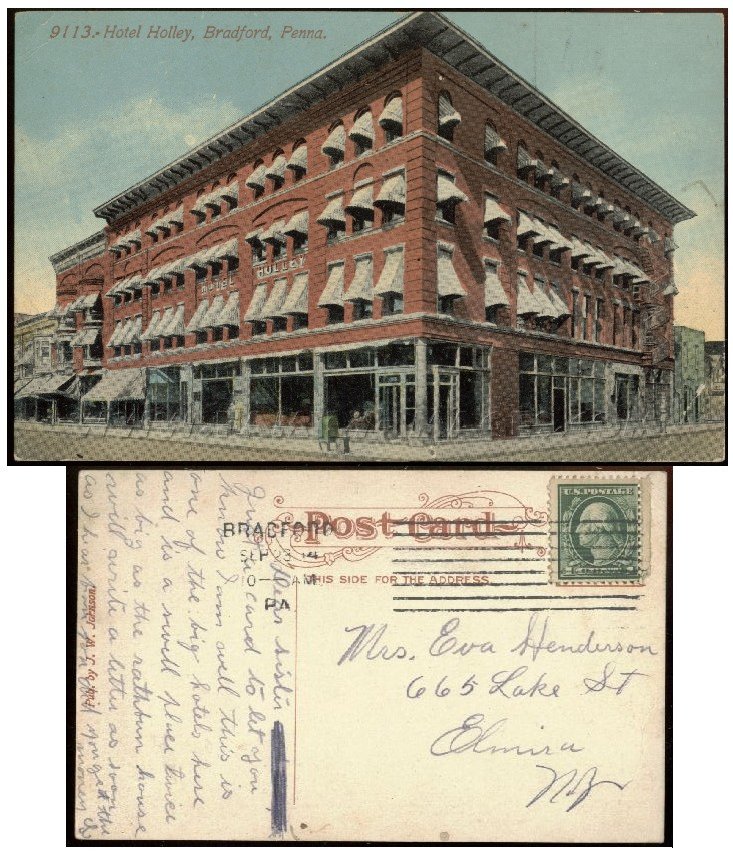 9113.- Hotel Holley, Bradford, Penna.
HOTEL HOLLEY
Post Card
BRADFORD
SEP 14
AM
PA
THIS SIDE FOR THE ADDRESS
U.S. POSTAGE
Mrs. Eva Henderson
665 Lake St
Elmira
NY
Dear sister
Just a card to let you
know I am well this is
one of the big hotels here
and is a swell place twice
as big as the rathbun house
will write a letter as soon
as I hear from you
Pub. by J. W. Johnson.